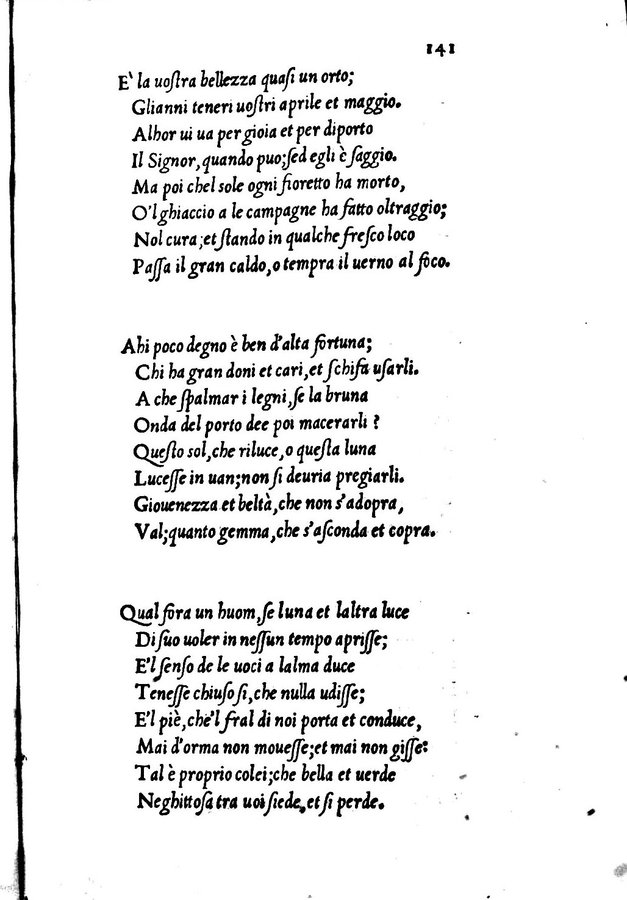 141
E' la uoſtra bellezza quaſi un orto;
Glianni teneri uoſtri aprile et maggio.
Alhor ui ua per gioia et per diporto
Il Signor, quando puo; ſed egli è ſaggio.
Ma poi chel sole ogni fioretto ha morto,
O'l ghiaccio a le campagne ha fatto oltraggio;
Nol cura; et ſtando in qualche freſco loco
Paſſa il gran caldo, o tempra il uerno al foco.
Ahi poco degno è ben d'alta fortuna;
Chi ha gran doni et cari, et ſchifa uſarli.
A che ſpalmar i legni, ſe la bruna
Onda del porto dee poi macerarli ?
Queſto sol, che riluce, o queſta luna
Luceſſe in uan; non ſi deuria pregiarli.
Giouenezza et beltà, che non s'adopra,
Val; quanto gemma, che s'aſconda et copra.
Qual fora un huom, ſe luna et laltra luce
Di ſuo uoler in neſſun tempo apriſſe;
E'l ſenſo de le uoci a lalma duce
Teneſſe chiuſo ſi, che nulla udiſſe;
E'l piè, che'l fral di noi porta et conduce,
Mai d'orma non moueſſe; et mai non giſſe:
Tal è proprio colei; che bella et uerde
Neghittoſa tra uoi ſiede, et ſi perde.